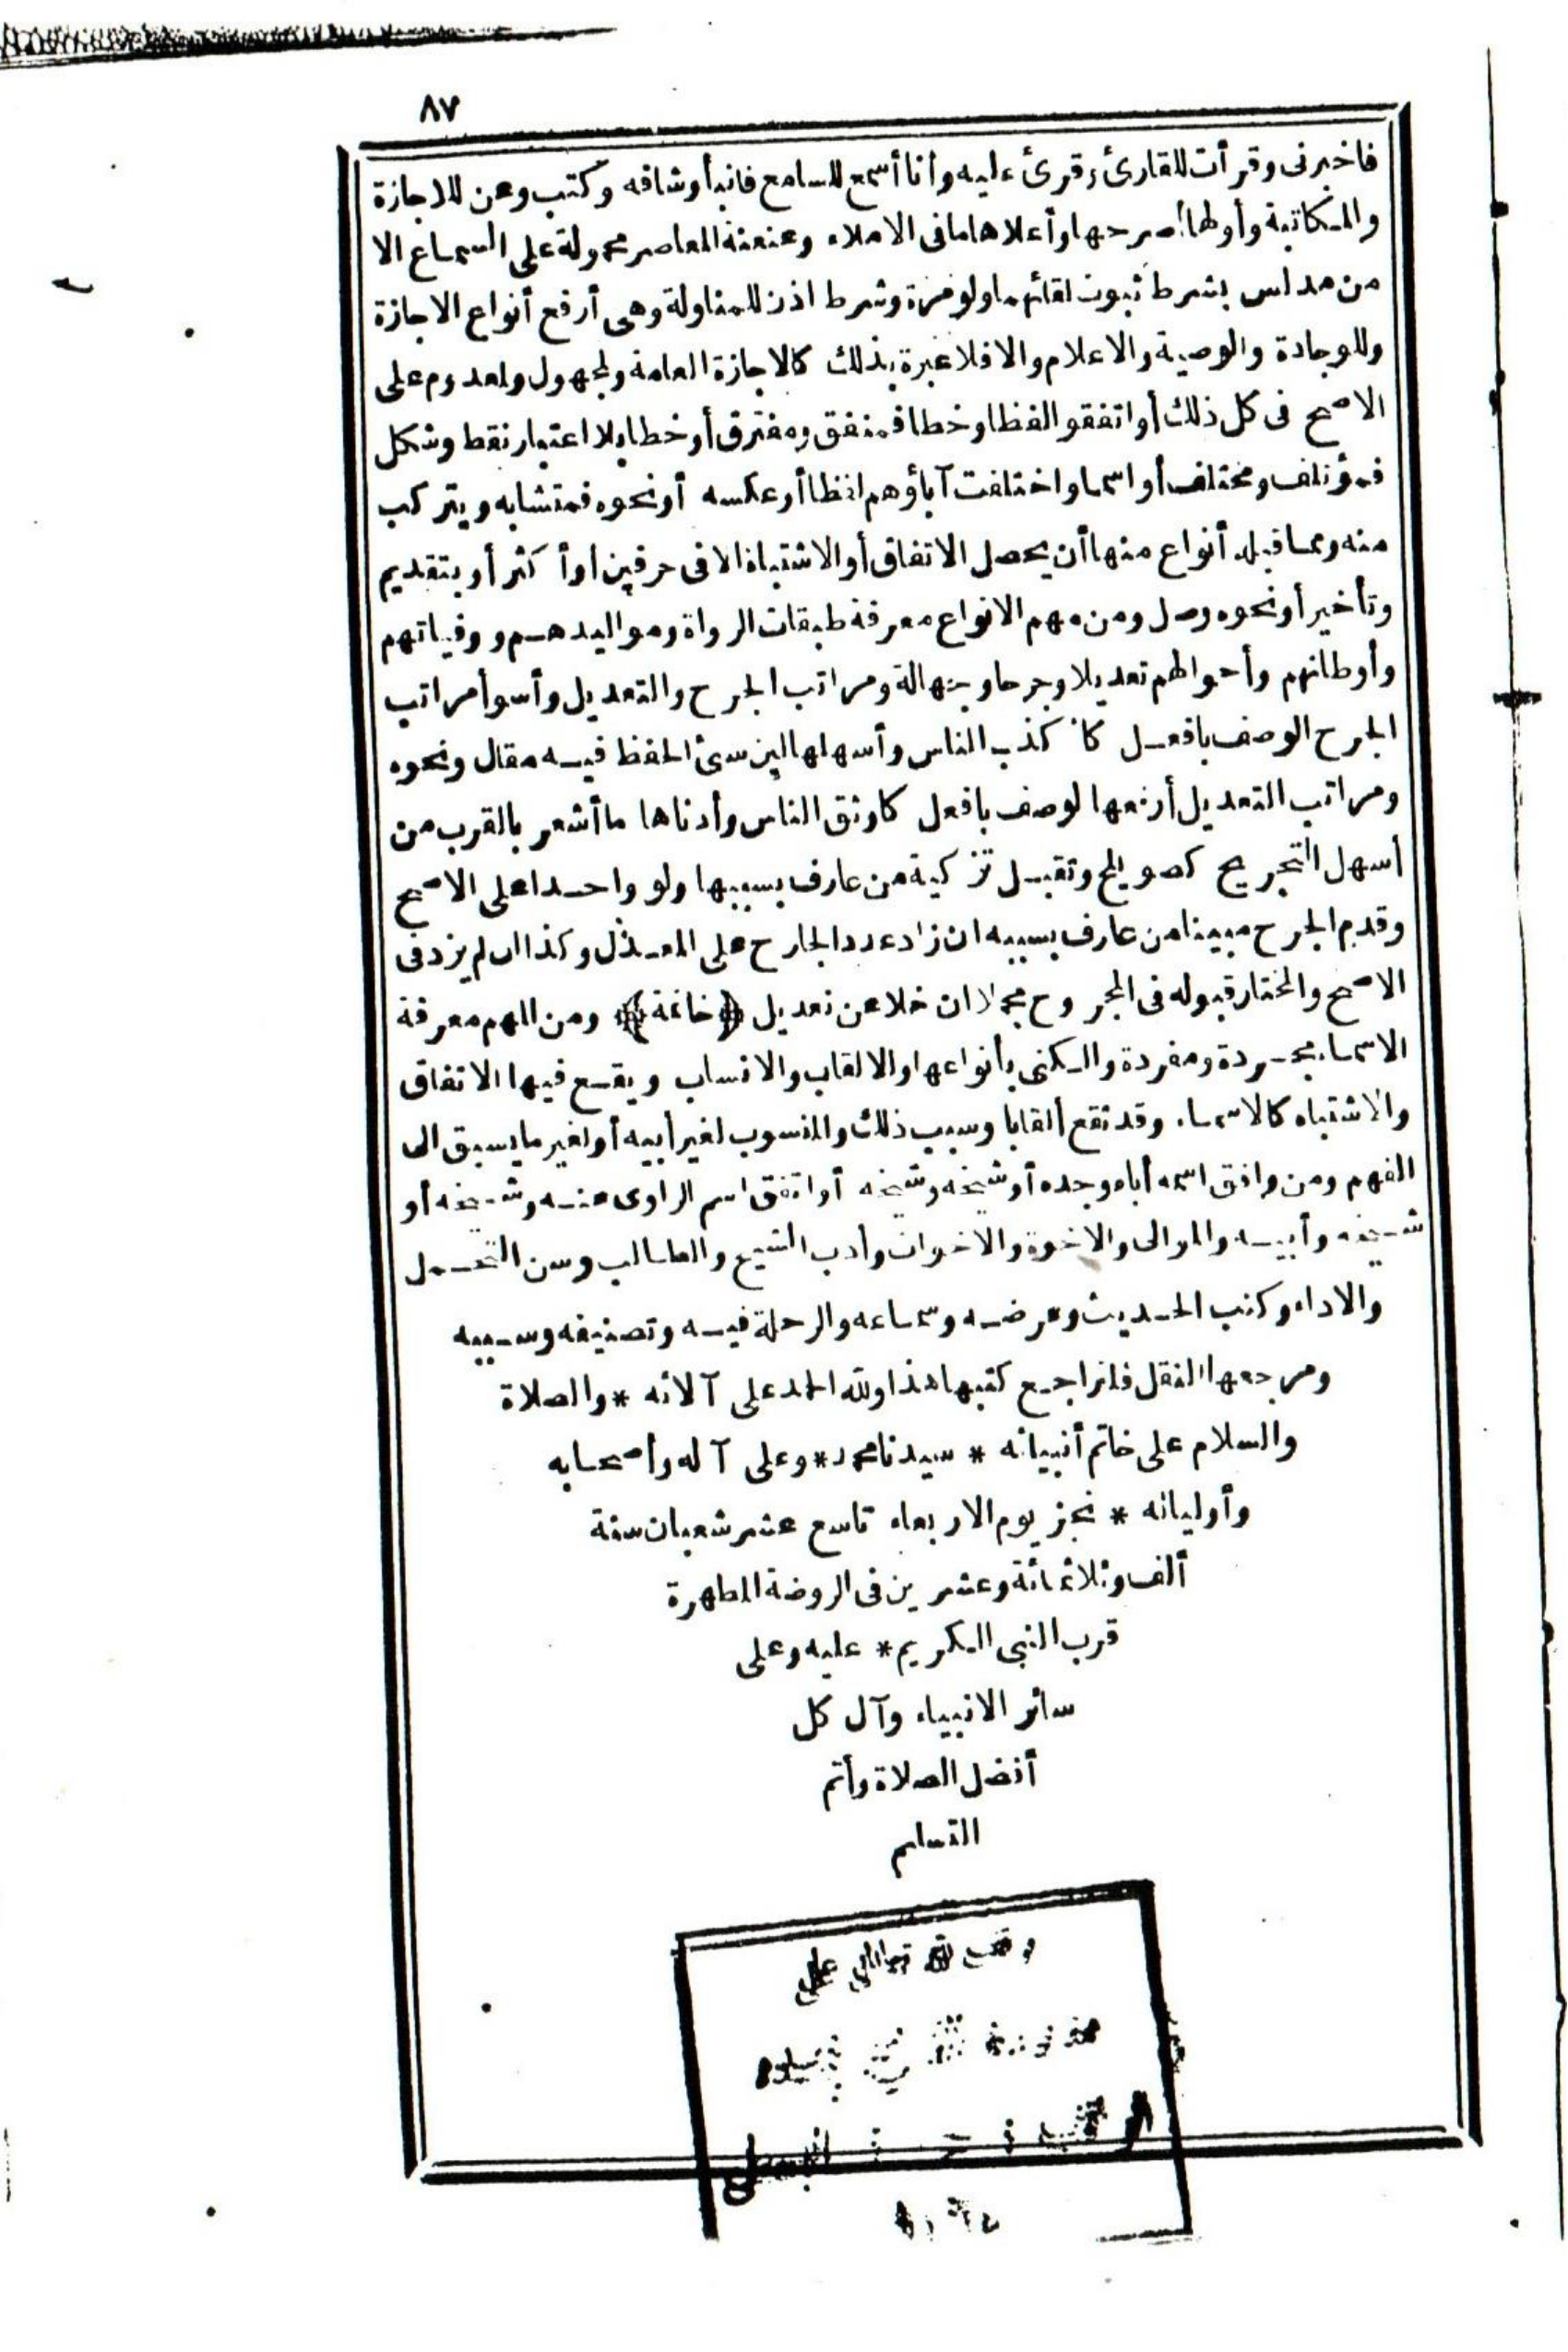 ٨٧
فاخبرنى وقرأت للقارئ وقرئ عليه وأنا أسمع للسامع فانبأ وشافه وكتب وعن للاجازة
والمكاتبة وأولها أصرحها وأعلاها ما فى الاملاء وعنعنة المعاصر محمولة على السماع الا
من مدلس بشرط ثبوت لقائهما ولو مرة وشرط اذن للمناولة وهى أرفع أنواع الاجازة
وللوجادة والوصية والاعلام والا فلا عبرة بذلك كالاجازة العامة ولمجهول ولمعدوم على
الاصح فى كل ذلك أو اتفقوا لفظا وخطا فمتفق ومفترق أو خطا بلا اعتبار نقط وشكل
فمؤتلف ومختلف أو اسما واختلفت آباؤهم لفظا أو عكسه أو نحوه فمتشابه ويتركب
منه ومما قبله أنواع منها أن يحصل الاتفاق أو الاشتباه الا فى حرفين أو أكثر أو بتقديم
وتأخير أو نحوه وصل ومن مهم الانواع معرفة طبقات الرواة ومواليدهم ووفياتهم
وأوطانهم وأحوالهم تعديلا وجرحا وجهالة ومراتب الجرح والتعديل وأسوأ مراتب
الجرح الوصف بافعل كاكذب الناس وأسهلها لين سئ الحفظ فيه مقال ونحوه
ومراتب التعديل أرفعها لوصف بافعل كاوثق الناس وأدناها ما أشعر بالقرب من
أسهل التجريح كصويلح وتقبل تزكية من عارف بسببها ولو واحدا على الاصح
وقدم الجرح مبينا من عارف بسببه ان زاد عدد الجارح على المعدل وكذا ان لم يزد فى
الاصح والمختار قبوله فى المجروح مجملا ان خلا عن تعديل ﴿خاتمة﴾ ومن المهم معرفة
الاسماء مجردة ومفردة والكنى بأنواعها والالقاب والانساب ويقع فيها الاتفاق
والاشتباه كالاسماء وقد تقع ألقابا وسبب ذلك والمنسوب لغير أبيه أو لغير ما يسبق الى
الفهم ومن وافق اسمه أباه وجده أو شيخه وشيخه أو اتفق اسم الراوى عنه وشيخه أو
شيخه وأبيه والموالى والاخوة والاخوات وأدب الشيخ والطالب وسن التحمل
والاداء وكتب الحديث وعرضه وسماعه والرحلة فيه وتصنيفه وسببه
ومرجعها النقل فلتراجع كتبها هذا ولله الحمد على آلائه * والصلاة
والسلام على خاتم أنبيائه * سيدنا محمد * وعلى آله وأصحابه
وأوليائه * نجز يوم الاربعاء تاسع عشر شعبان سنة
ألف وثلاثمائة وعشرين فى الروضة المطهرة
قرب النبى الكريم * عليه وعلى
سائر الانبياء وآل كل
أفضل الصلاة وأتم
التسليم
وقف لله تعالى على